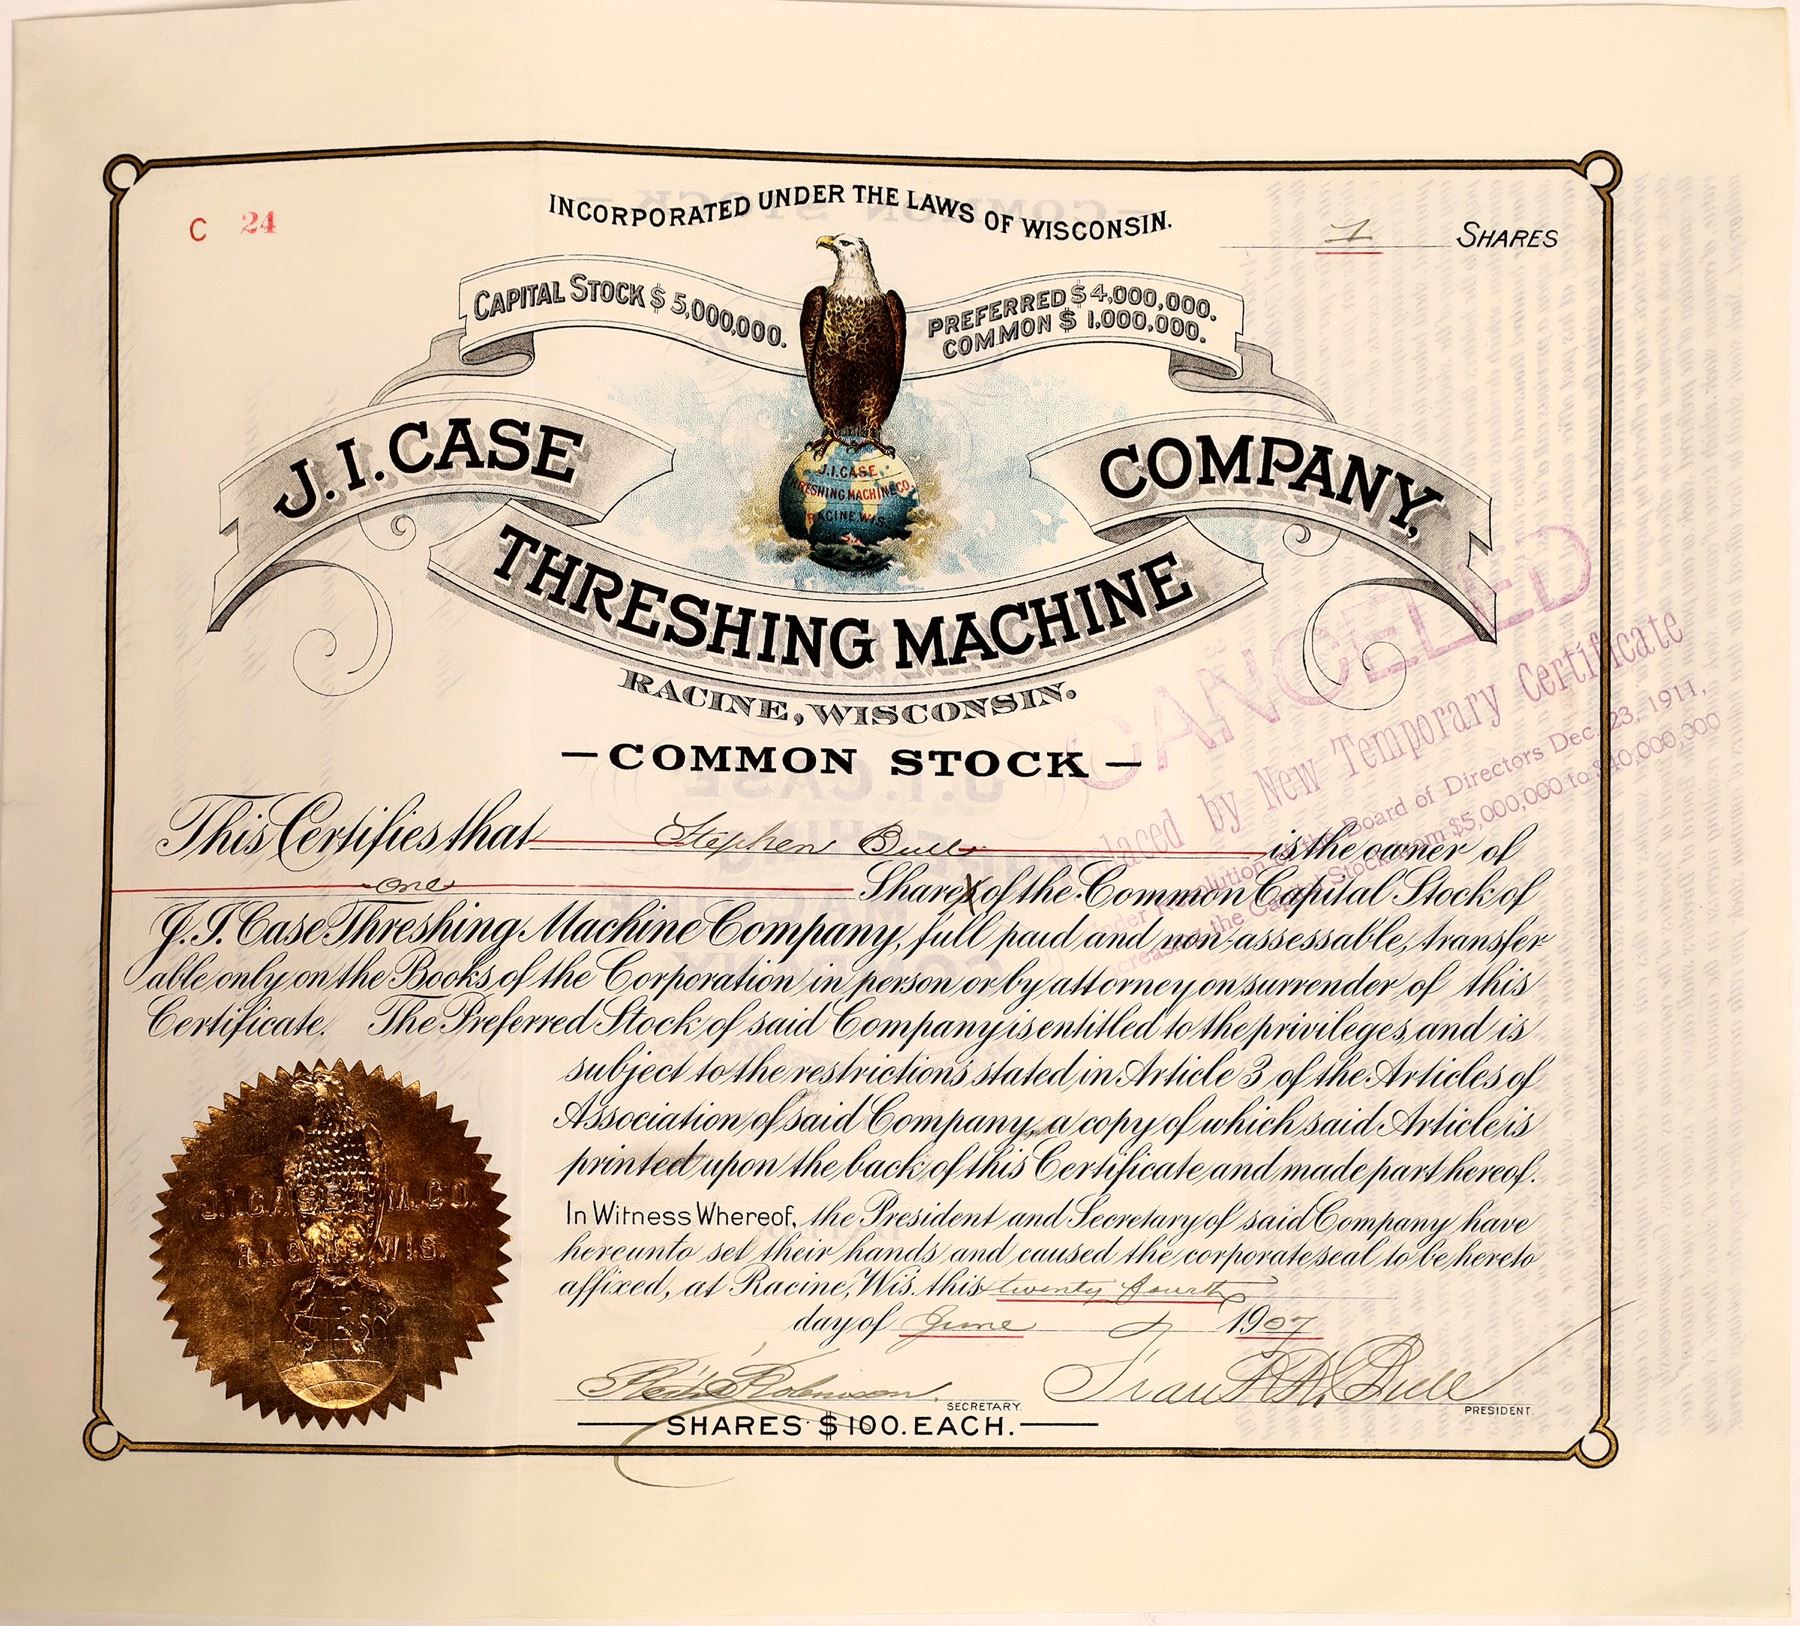 INCORPORATED UNDER THE LAWS OF WISCONSIN.
C 24
1 SHARES
CAPITAL STOCK $5,000,000.
PREFERRED $4,000,000.
COMMON $1,000,000.
J.I. CASE
THRESHING MACHINE
COMPANY,
J.I. CASE
THRESHING MACHINE CO.
RACINE, WIS.
RACINE, WISCONSIN.
— COMMON STOCK —
CANCELLED
Replaced by New Temporary Certificate
under resolution of the Board of Directors Dec. 23, 1911,
increasing the Capital Stock from $5,000,000 to $40,000,000
This Certifies that Stephen Bull is the owner of
one Shares of the Common Capital Stock of
J.I. Case Threshing Machine Company, full paid and non-assessable, transfer
able only on the Books of the Corporation in person or by attorney on surrender of this
Certificate. The Preferred Stock of said Company is entitled to the privileges, and is
subject to the restrictions stated in Article 3 of the Articles of
Association of said Company, a copy of which said Article is
printed upon the back of this Certificate and made part hereof.
In Witness Whereof, the President and Secretary of said Company have
hereunto set their hands and caused the corporate seal to be hereto
affixed, at Racine, Wis. this twenty fourth
day of June 1907
Robinson SECRETARY.
Frank K. Bull PRESIDENT.
SHARES $100. EACH.
J.I. CASE T. M. CO.
RACINE, WIS.